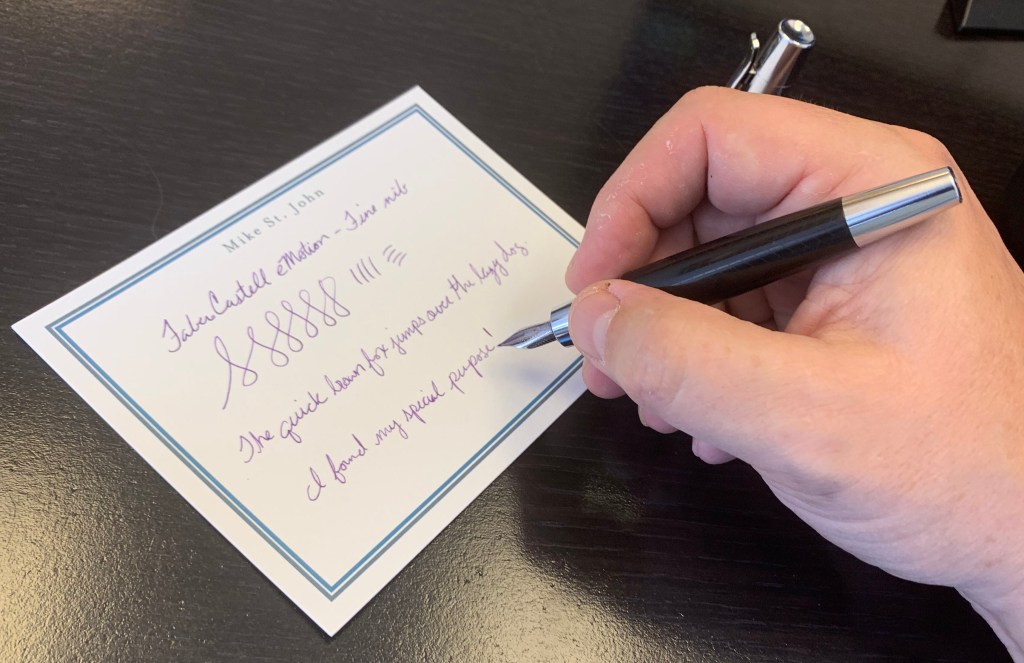 Mike St. John
FaberCastell eMotion - Fine nib
The quick brown fox jumps over the lazy dog.
I found my special purpose